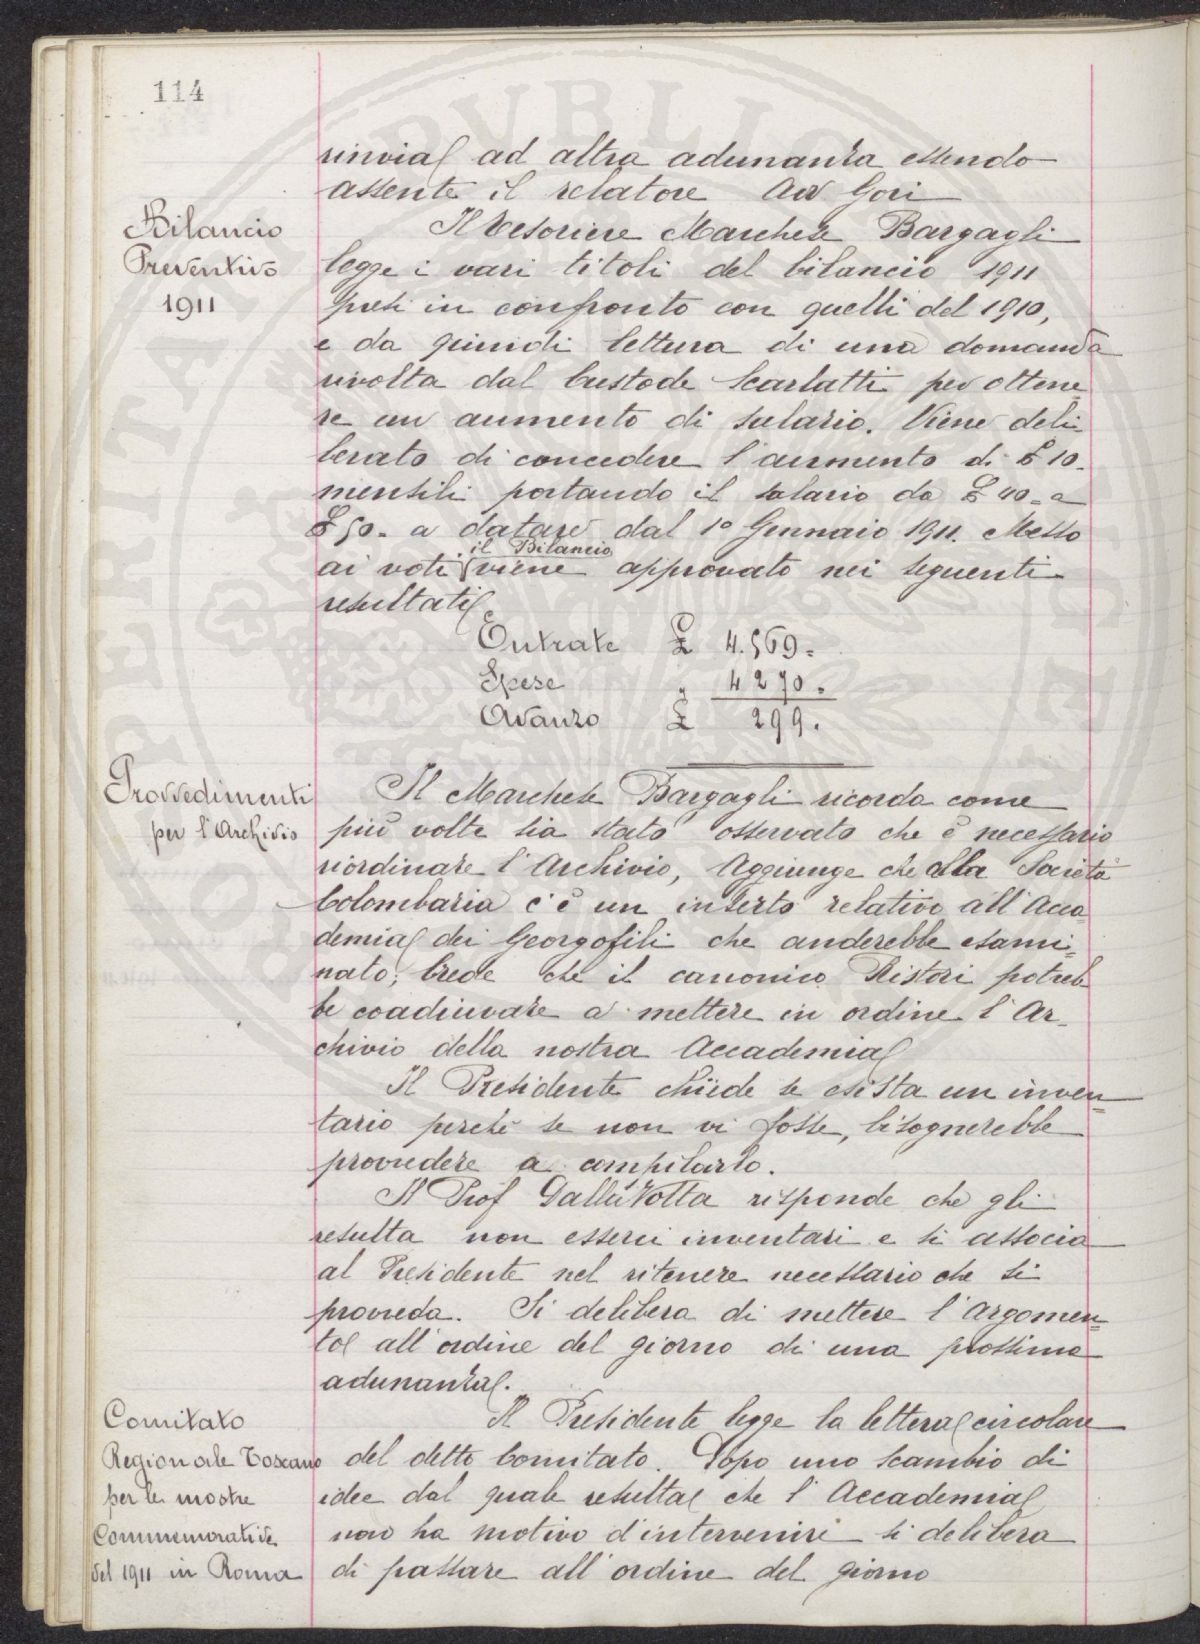 114
rinvia ad altra adunanza essendo
assente il relatore Avv Gori
Bilancio
Preventivo
1911
Il Tesoriere Marchese Bargagli
legge i vari titoli del bilancio 1911
presi in confronto con quelli del 1910,
e da quindi lettura di una domanda
rivolta dal Custode Scarlatti per ottene
re un aumento di salario. Viene deli
berato di concedere l'aumento di £ 10.
mensili portando il salario da £ 40.= a
£ 50.= a datare dal 1° Gennaio 1911. Messo
ai voti il Bilancio viene approvato nei seguenti
resultati
Entrate £ 4.569.=
Spese " 4270.=
Avanzo £ 299.
Provvedimenti
per l'Archivio
Il Marchese Bargagli ricorda come
più volte sia stato osservato che è necessario
riordinare l'Archivio, Aggiunge che alla Società
Colombaria c'è un inserto relativo all'Acca
demia dei Georgofili che anderebbe esami=
nato; Crede che il canonico Ristori potreb
be coadiuvare a mettere in ordine l'Ar=
chivio della nostra Accademia
Il Presidente chiede se esista un inven=
tario perchè se non vi fosse, bisognerebbe
provvedere a compilarlo.
Il Prof Dalla Volta risponde che gli
resulta non esserci inventari e si associa
al Presidente nel ritenere necessario che si
provveda. Si delibera di mettere l'Argomen=
to all'ordine del giorno di una prossima
adunanza.
Comitato
Regionale Toscano
per le mostre
Commemorative
del 1911 in Roma
Il Presidente legge la lettera circolare
del detto Comitato. Dopo uno scambio di
idee dal quale resulta che l'Accademia
non ha motivo d'intervenire si delibera
di passare all'ordine del giorno
PVBLICAE